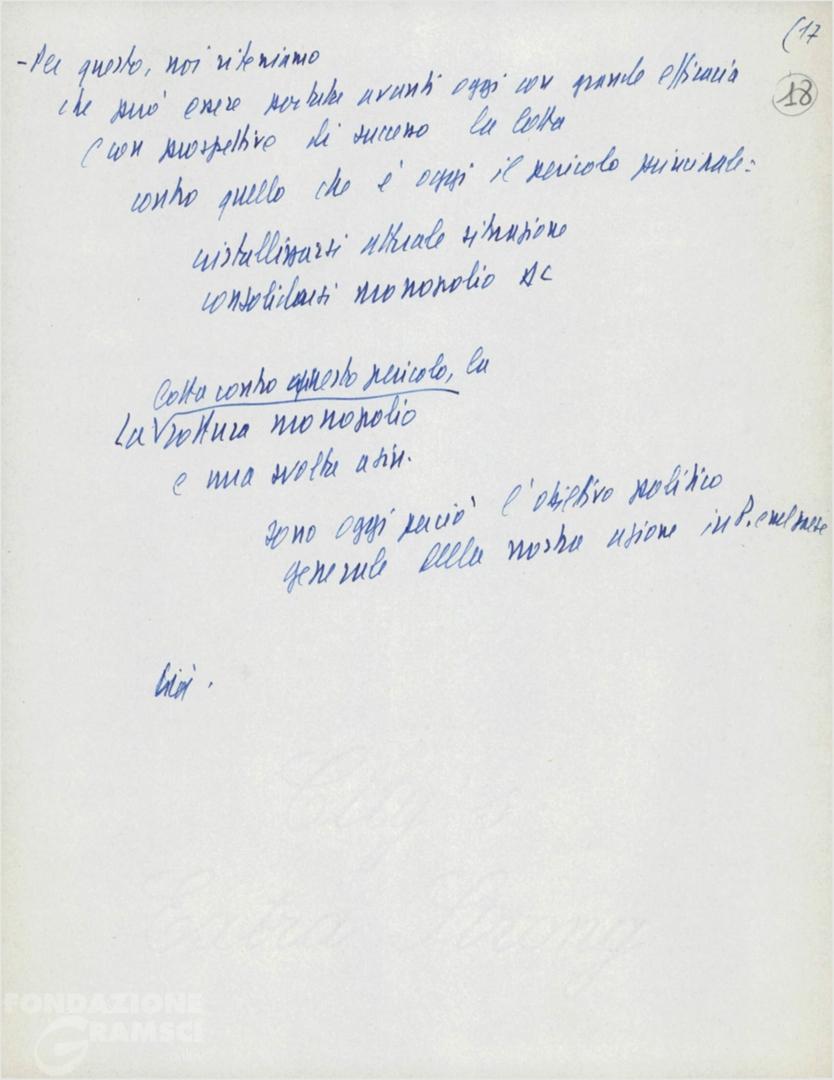 (17
18
- Per questo, noi riteniamo
che può essere portata avanti oggi con grande efficacia
e con prospettive di successo la lotta
contro quello che è oggi il pericolo principale:
cristallizzarsi attuale situazione
consolidarsi monopolio DC
Lotta contro questo pericolo, la
La rottura monopolio
e una svolta a sin.
sono oggi perciò l'obiettivo politico
generale della nostra azione in P. e nel paese
Extra Strong
FONDAZIONE
GRAMSCI